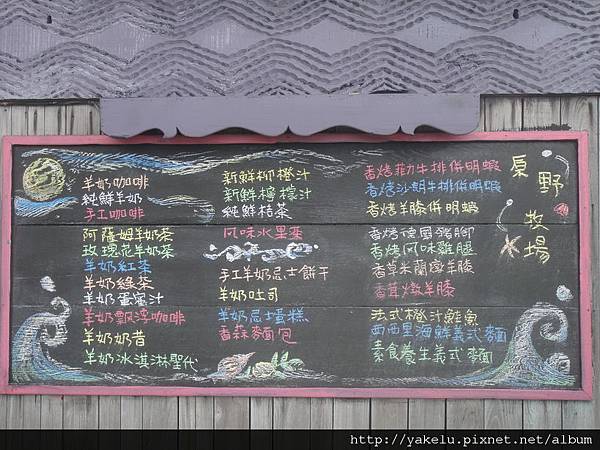 原野牧場
羊奶咖啡
純鮮羊奶
手工咖啡
阿薩姆羊奶茶
玫瑰花羊奶茶
羊奶紅茶
羊奶綠茶
羊奶蛋蜜汁
羊奶飄浮咖啡
羊奶奶昔
羊奶冰淇淋聖代
新鮮柳橙汁
新鮮檸檬汁
純鮮桔茶
風味水果茶
手工羊奶起士餅干
羊奶吐司
羊奶起士蛋糕
香蒜麵包
香烤菲力牛排併明蝦
香烤沙朗牛排併明蝦
香烤羊膝併明蝦
香烤德國豬腳
香烤風味雞腿
香草米蘭燉羊膝
香茸燉羊膝
法式橙汁鮭魚
西西里海鮮義式麵
素食養生義式麵
http://yakelu.pixnet.net/album